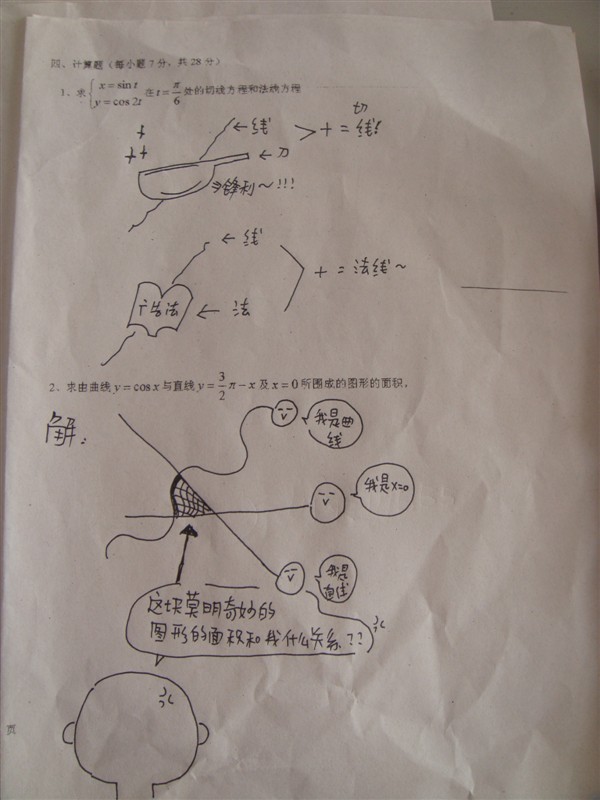 四、计算题（每小题 7 分，共 28 分）
1、求{x = sin t
y = cos 2t 在 t = π/6 处的切线方程和法线方程
←线
←刀
→锋利～!!!
> + = 切线!
←线
个当法
←法
> + = 法线～
2、求由曲线 y = cos x 与直线 y = 3/2 π − x 及 x = 0 所围成的图形的面积。
解：
我是曲线
我是X=0
我是直线
这块莫明奇妙的
图形的面积和我什么关系??
页